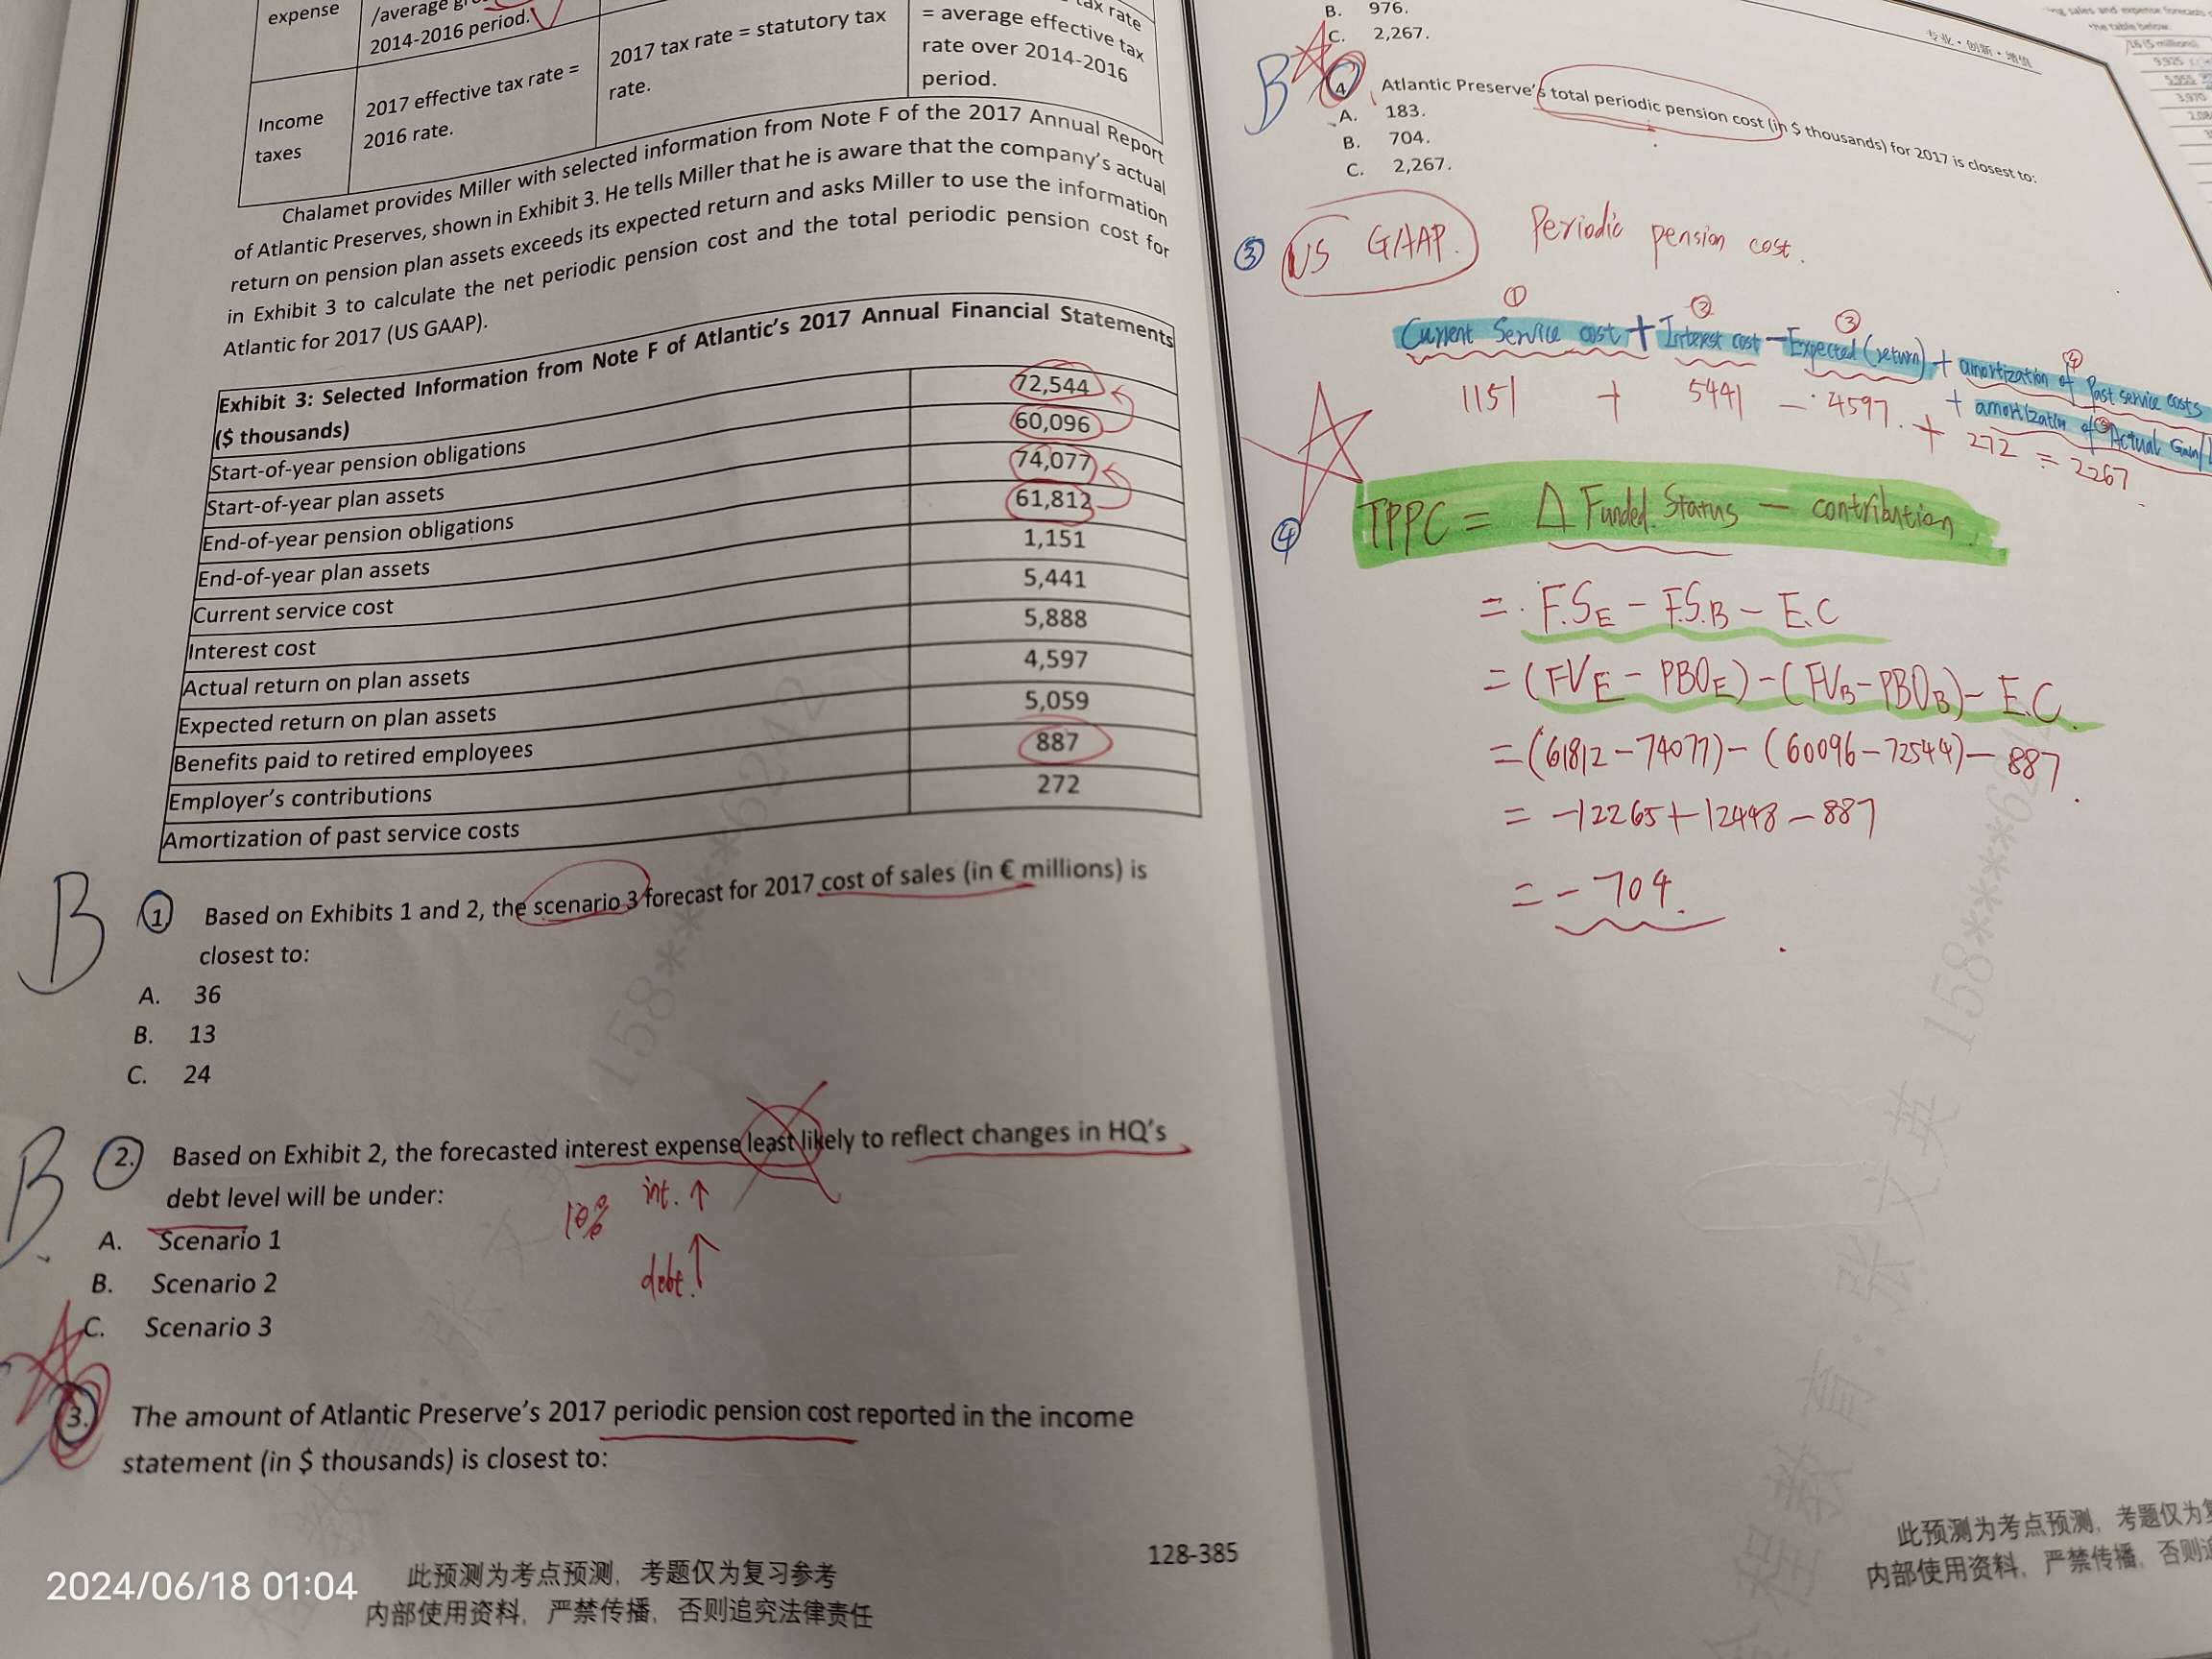 expense
/average
2014-2016 period.
Income taxes
2017 effective tax rate = 2016 rate.
2017 tax rate = statutory tax rate.
tax rate
= average effective tax rate over 2014-2016 period.
Chalamet provides Miller with selected information from Note F of the 2017 Annual Report
of Atlantic Preserves, shown in Exhibit 3. He tells Miller that he is aware that the company's actual
return on pension plan assets exceeds its expected return and asks Miller to use the information
in Exhibit 3 to calculate the net periodic pension cost and the total periodic pension cost for
Atlantic for 2017 (US GAAP).
Exhibit 3: Selected Information from Note F of Atlantic's 2017 Annual Financial Statements
($ thousands)
Start-of-year pension obligations 72,544
Start-of-year plan assets 60,096
End-of-year pension obligations 74,077
End-of-year plan assets 61,812
Current service cost 1,151
Interest cost 5,441
Actual return on plan assets 5,888
Expected return on plan assets 4,597
Benefits paid to retired employees 5,059
Employer's contributions 887
Amortization of past service costs 272
B
1. Based on Exhibits 1 and 2, the scenario 3 forecast for 2017 cost of sales (in € millions) is
closest to:
A. 36
B. 13
C. 24
B
2. Based on Exhibit 2, the forecasted interest expense least likely to reflect changes in HQ's
debt level will be under:
10% int. ↑
debt. ↑
A. Scenario 1
B. Scenario 2
C. Scenario 3
3. The amount of Atlantic Preserve's 2017 periodic pension cost reported in the income
statement (in $ thousands) is closest to:
128-385
此预测为考点预测，考题仅为复习参考
内部使用资料，严禁传播，否则追究法律责任
2024/06/18 01:04
专业·创新·增值
B. 976.
C. 2,267.
B
4. Atlantic Preserve's total periodic pension cost (in $ thousands) for 2017 is closest to:
A. 183.
B. 704.
C. 2,267.
③ US GAAP. Periodic pension cost.
① ② ③ ④
Current Service cost + Interest cost - Expected (return) + amortization of Past service costs
+ amortization of Actual Gain/
1151 + 5441 - 4597. + 272 = 2267
④ TPPC = Δ Funded Status - contribution
= F.S_E - F.S.B - E.C
= (FV_E - PBO_E) - (FV_B - PBO_B) - E.C.
= (61812 - 74077) - (60096 - 72544) - 887
= -12265 + 12448 - 887
= -704.
sales and expense forecasts
the table below.
16 ($ millions)
9,925
5,955
3,970
此预测为考点预测，考题仅为
内部使用资料，严禁传播，否则